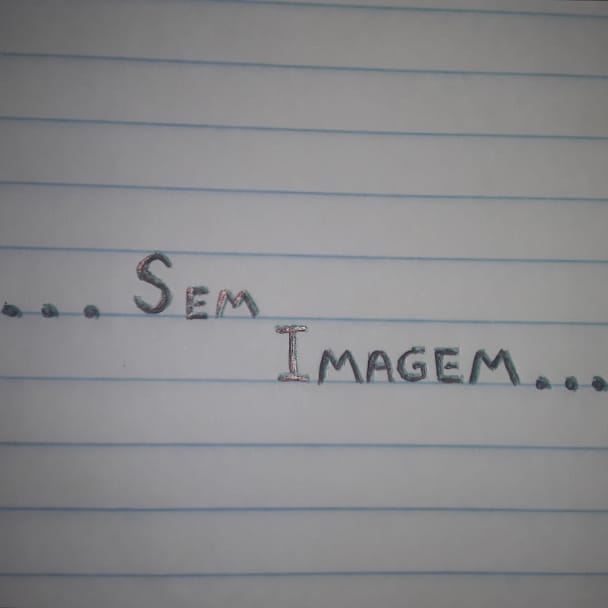 ...Sem
Imagem...